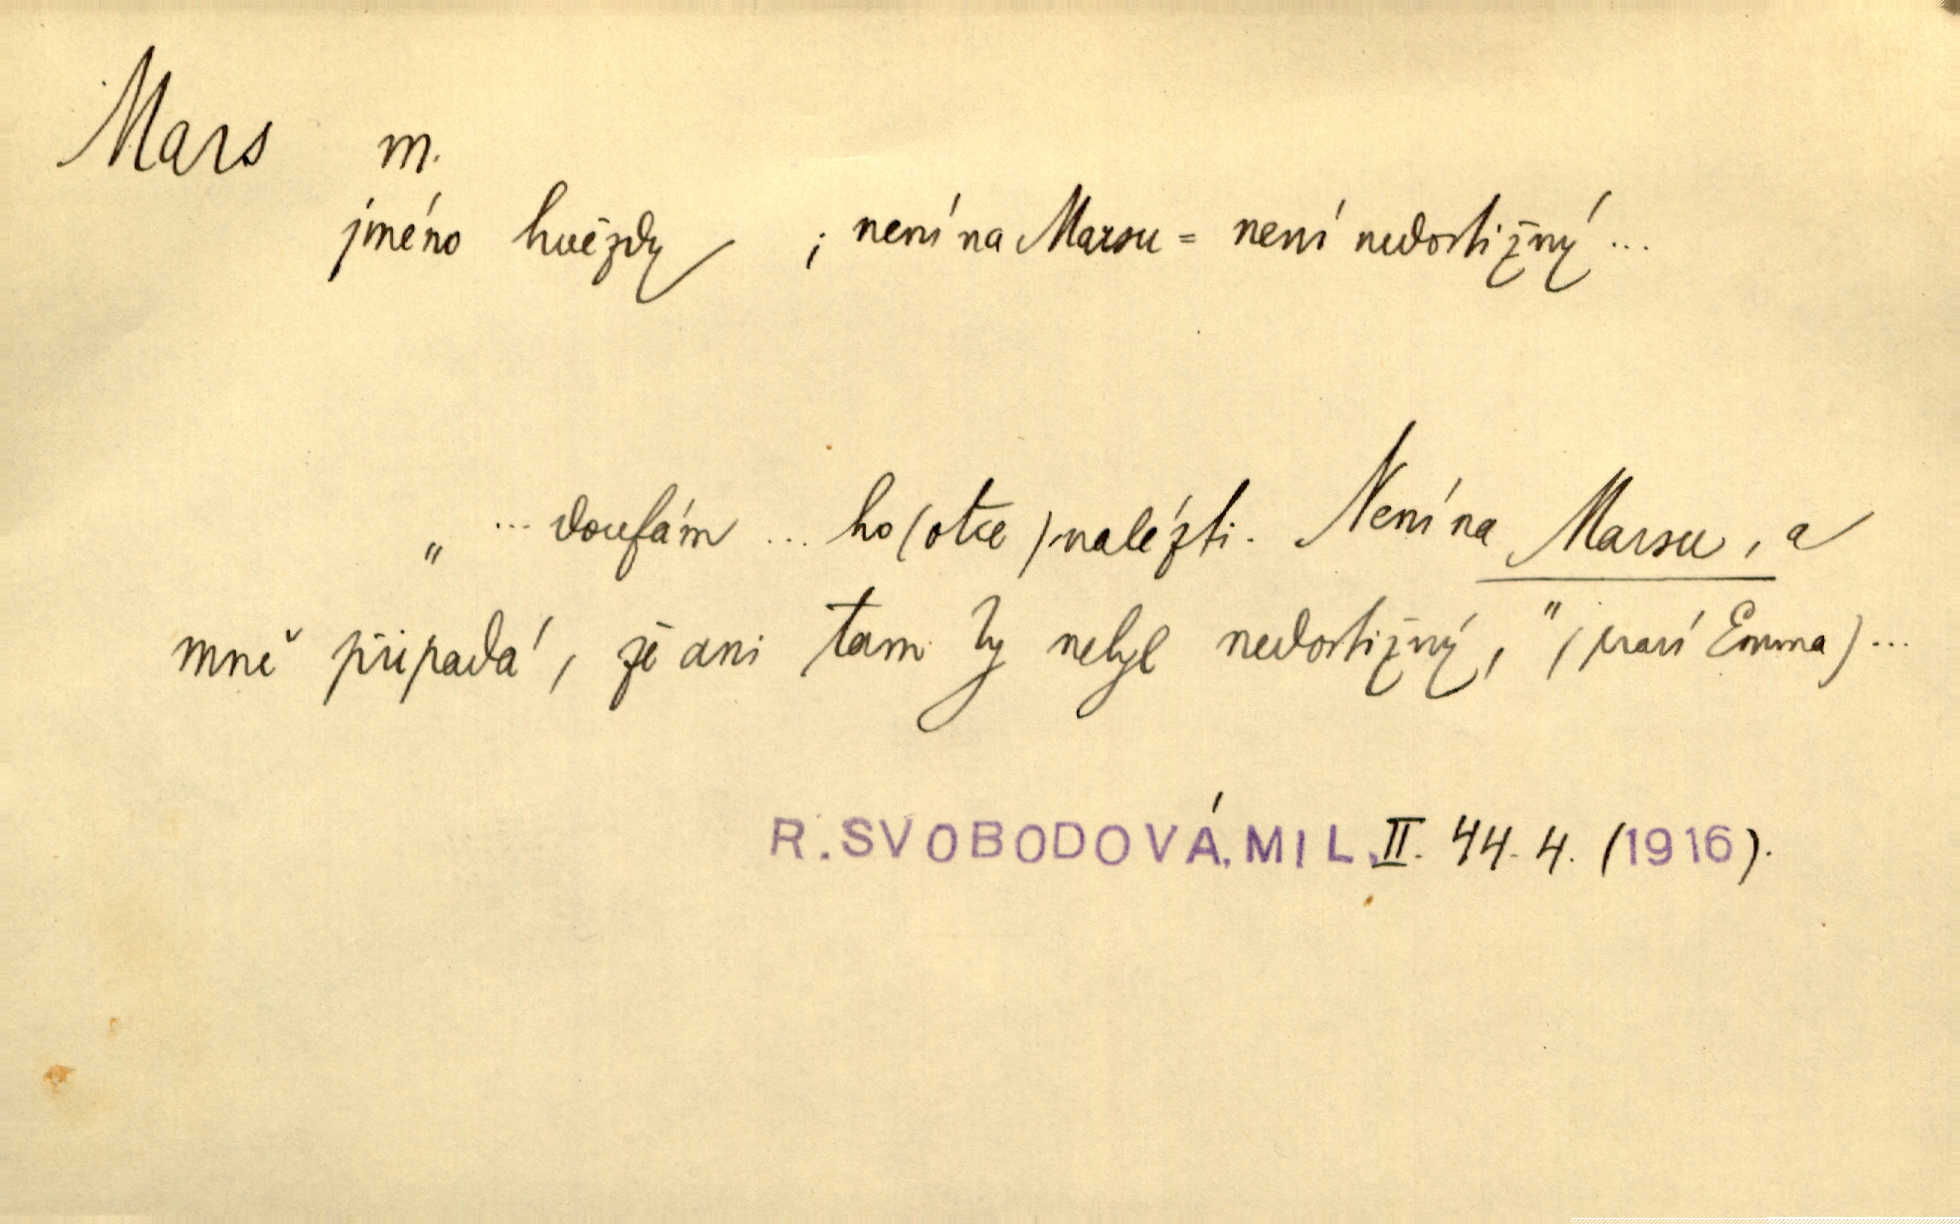 Mars m.
jméno hvězdy ; není na Marsu = není nedostižný ...
„ ... doufám ... ho (otce) nalézti. Není na Marsu, a
mně připadá, že ani tam by nebyl nedostižný," (praví Emma) ...
R. SVOBODOVÁ, MIL. II. 44. 4. (1916).